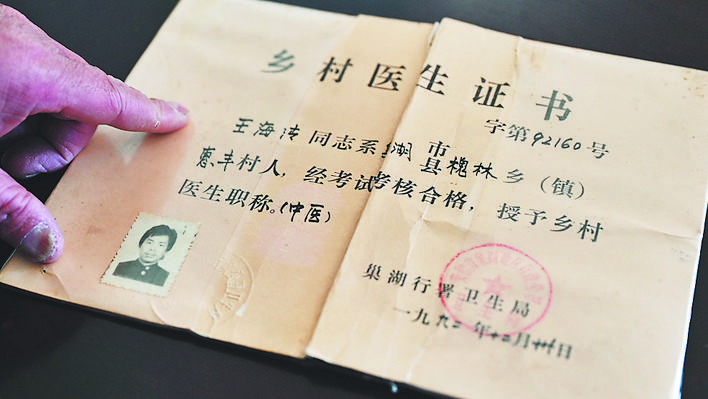 乡村医生证书
字第92160号
王海涛同志系巢湖市县槐林乡（镇）
惠丰村人，经考试考核合格，授予乡村
医生职称。（中医）
巢湖行署卫生局
一九九二年十二月 日